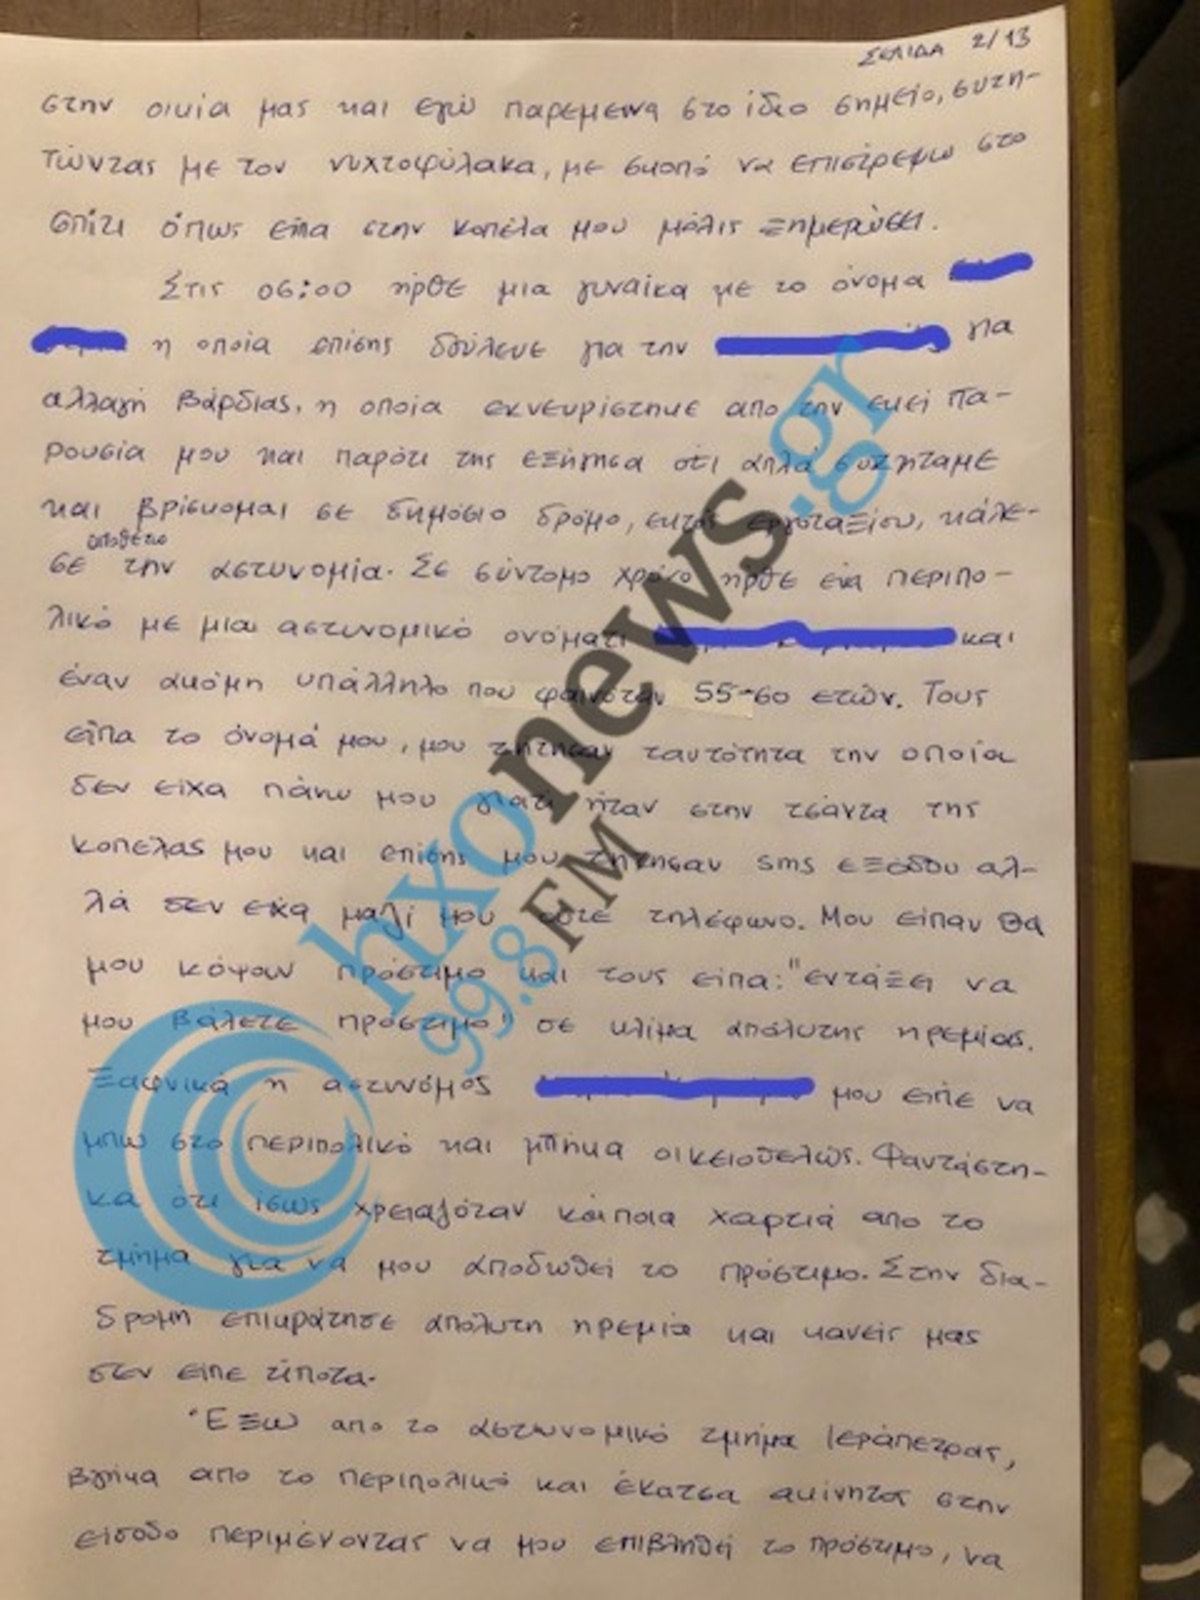 ΣΕΛΙΔΑ 2/13
στην οικία μας και εγώ παρεμεινα στο ίδιο σημείο, συζη-
τώντας με τον νυχτοφύλακα, με σκοπό να επιστρεψω στο
σπίτι όπως είπα στην κοπέλα μου μόλις ξημερώσει.
Στις 06:00 ήρθε μια γυναίκα με το όνομα
η οποία επίσης δούλευε για την για
αλλαγή βάρδιας, η οποία εκνευρίστηκε απο την εκεί πα-
ρουσία μου και παρότι της εξήγησα ότι απλά συζητάμε
και βρίσκομαι σε δημόσιο δρόμο, εκτός εργοταξίου, κάλε-
υποθέτω
σε την αστυνομία. Σε σύντομο χρόνο ήρθε ένα περιπο-
λικό με μια αστυνομικό ονόματι και
έναν ακόμη υπάλληλο που φαινόταν 55-60 ετών. Τους
είπα το όνομά μου, μου ζήτησαν ταυτότητα την οποία
δεν είχα πάνω μου γιατί ήταν στην τσάντα της
κοπέλας μου και επίσης μου ζήτησαν sms εξόδου αλ-
λά δεν είχα μαζί μου ούτε τηλέφωνο. Μου είπαν θα
μου κόψουν πρόστιμο και τους είπα: "εντάξει να
μου βάλετε πρόστιμο" σε κλίμα απόλυτης ηρεμίας.
Ξαφνικά η αστυνόμος μου είπε να
μπω στο περιπολικό και μπήκα οικειοθελώς. Φαντάστη-
κα ότι ίσως χρειαζόταν κάποια χαρτιά απο το
τμήμα για να μου αποδωθεί το πρόστιμο. Στην δια-
δρομή επικράτησε απόλυτη ηρεμία και κανείς μας
δεν είπε τίποτα.
Έξω απο το αστυνομικό τμήμα Ιεράπετρας,
βγήκα απο το περιπολικό και έκατσα ακίνητος στην
είσοδο περιμένοντας να μου επιβληθεί το πρόστιμο, να
hxonews.gr
99.8 FM